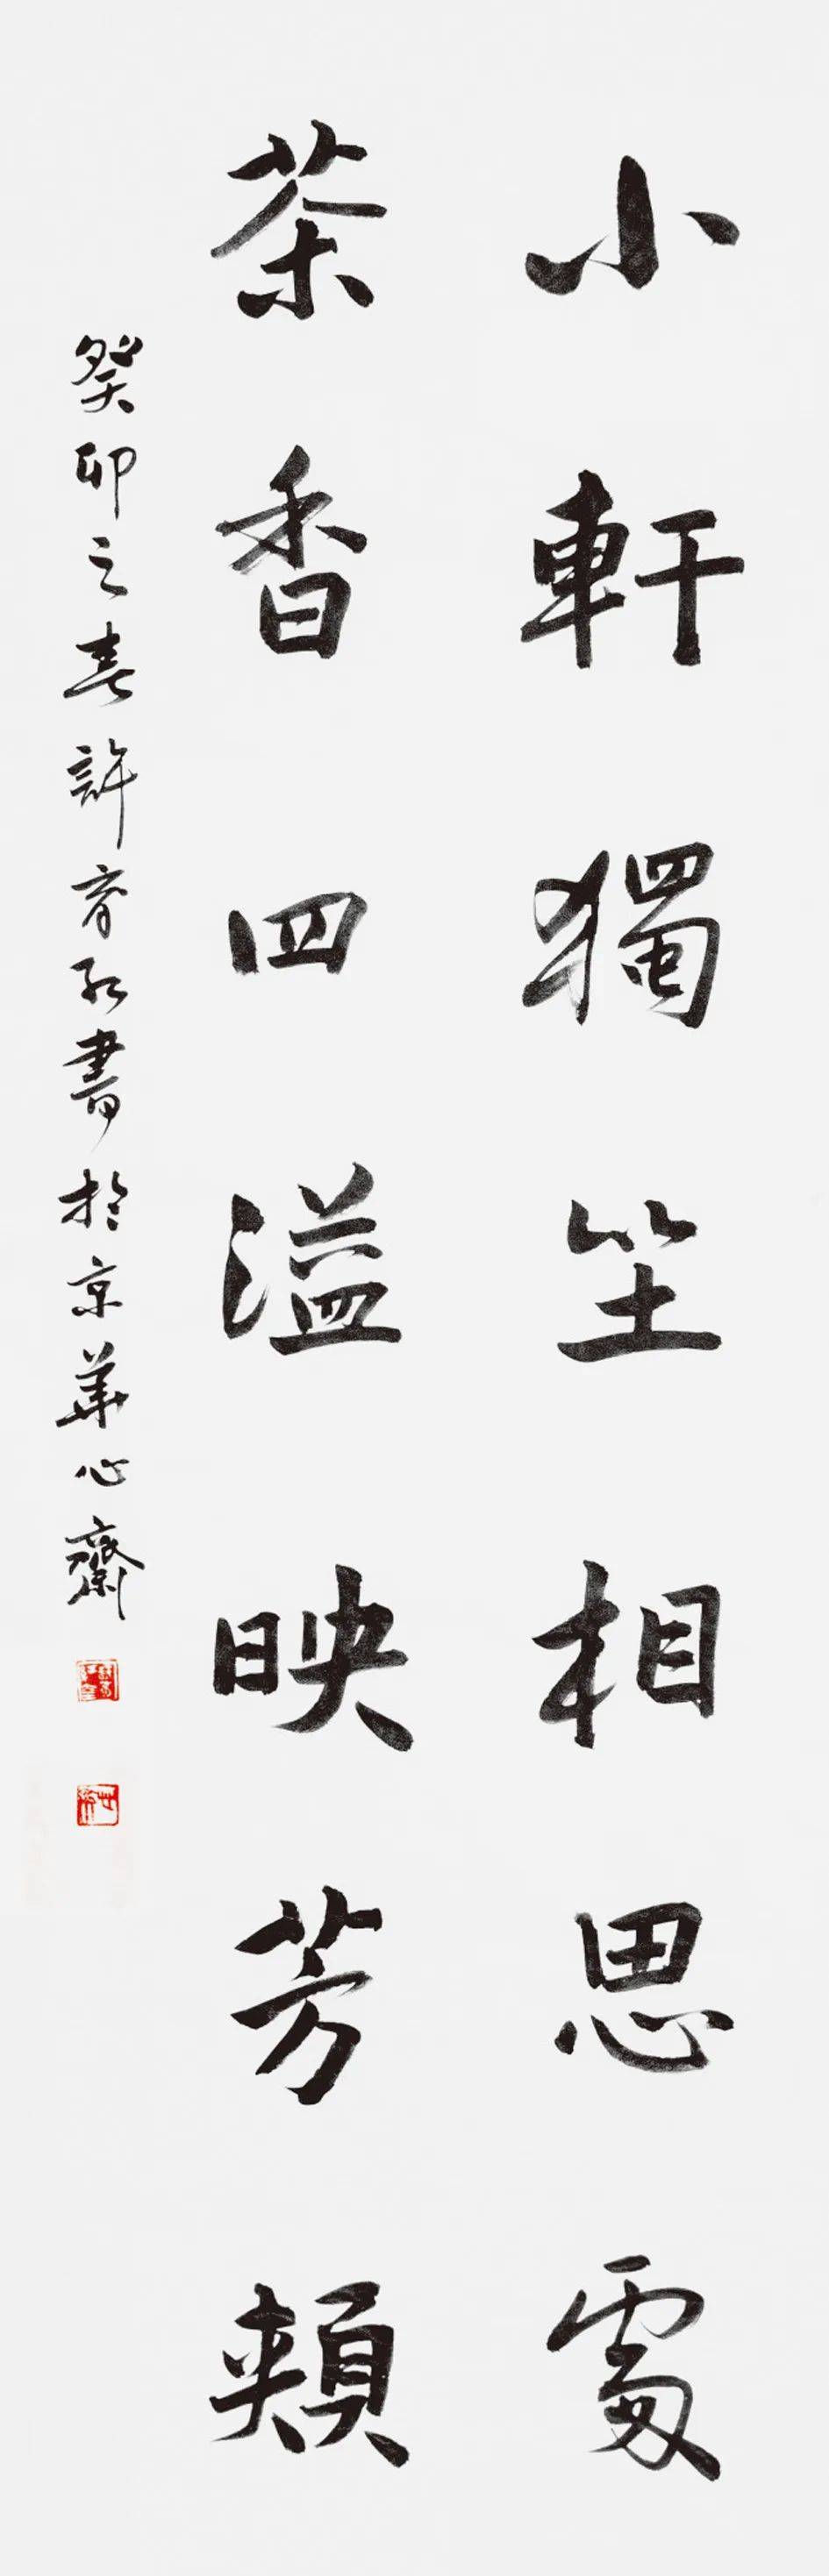 小軒獨坐相思處
茶香四溢映芳頰
癸卯之春許育紅書於京華心齋